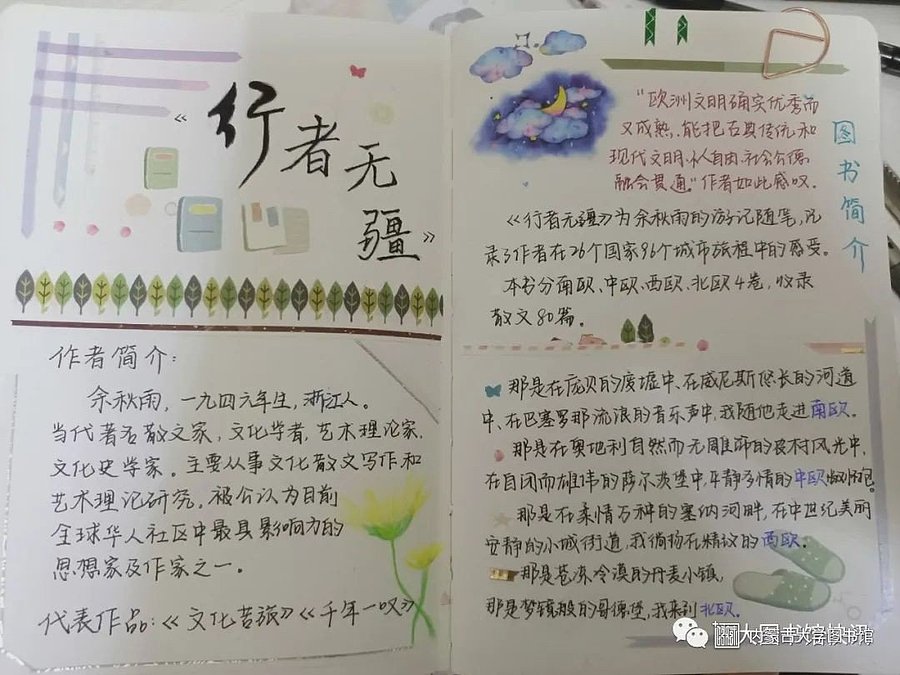 《行者无疆》
作者简介：
余秋雨，一九四六年生，浙江人。
当代著名散文家，文化学者，艺术理论家，
文化史学家。主要从事文化散文写作和
艺术理论研究。被公认为目前
全球华人社区中最具影响力的
思想家及作家之一。
代表作品：《文化苦旅》《千年一叹》
图书简介
“欧洲文明确实优秀而
又成熟，能把古典传统和
现代文明，个人自由，社会公德
融会贯通。”作者如此感叹．
《行者无疆》为余秋雨的游记随笔，记
录了作者在26个国家96个城市旅程中的感受。
本书分南欧、中欧、西欧、北欧4卷，收录
散文80篇。
那是在庞贝的废墟中、在威尼斯悠长的河道
中、在巴塞罗那流浪的音乐声中，我随他走进南欧．
那是在奥地利自然而无雕饰的农村风光中，
在自闭而雄伟的萨尔茨堡中，平静多情的中欧
那是在柔情万种的塞纳河畔，在中世纪美丽
安静的小城街道，我徜徉在精致的西欧．
那是苍凉冷漠的丹麦小镇，
那是梦镜般的哥德堡，我来到北欧．
内蒙古大学图书馆